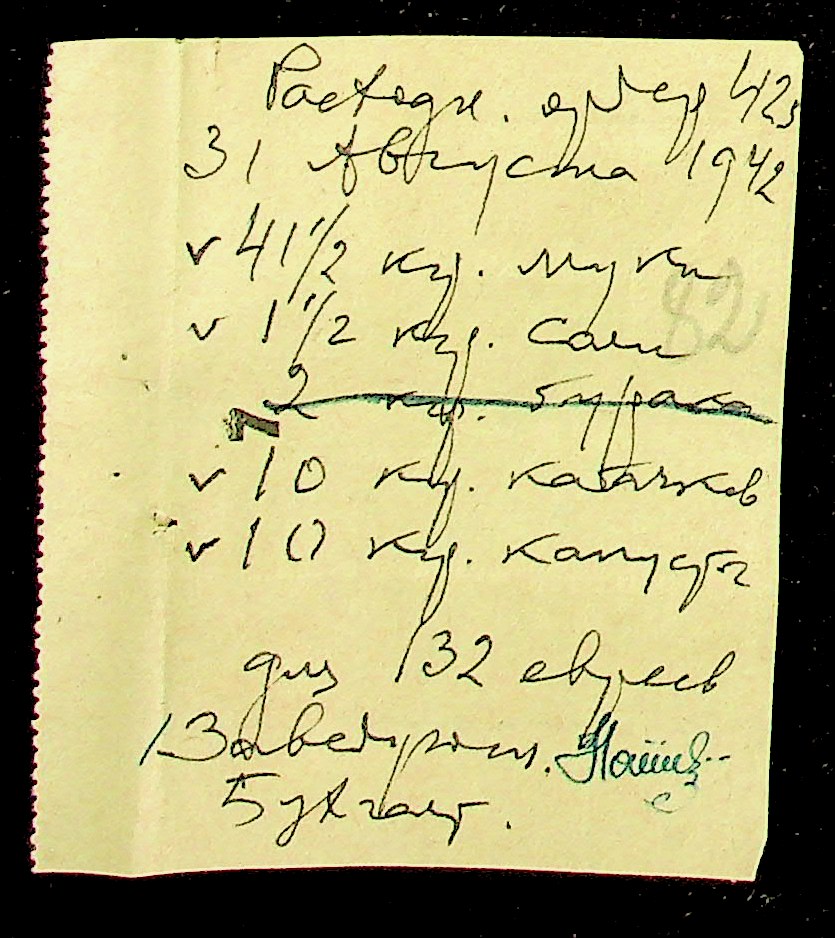 Расходн. ордер 425
31 Августа 1942
v 41 1/2 кгр. муки
v 1 1/2 кгр. соли
82
2 кгр. бурака
v 10 кгр. кабачков
v 10 кгр. капусты
для 132 евреев
Заведующ.
Бухгалт.